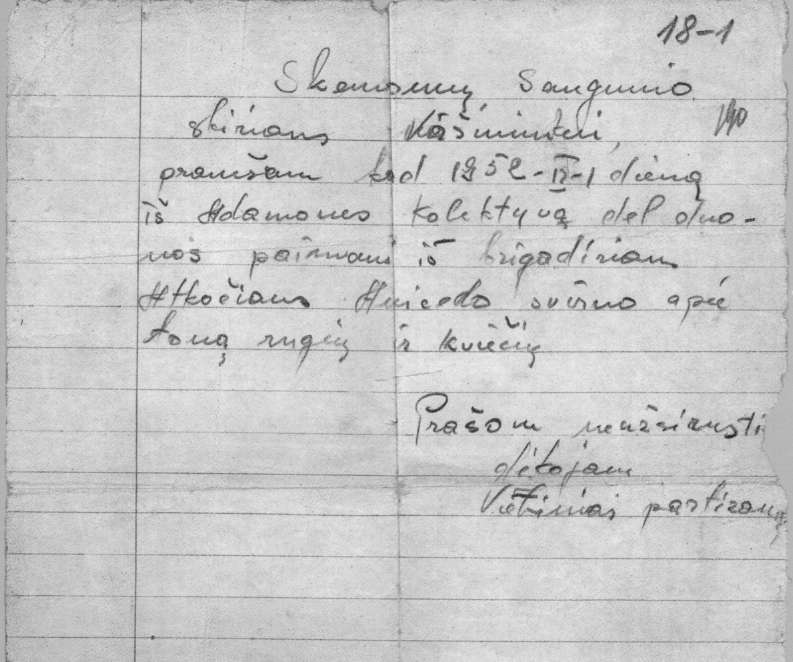 18-1
Skemsonių Sangunio
190
skirians Kašmintui,
pranešam kad 1952-II-1 dieną
iš Adamonies kolektyvą del duo-
nos paimami iš brigadirian
Atkočians svirno apie
toną rugių ir kviečių
Prašom neužsirusti
dėkojam
Vietiniai partizanų